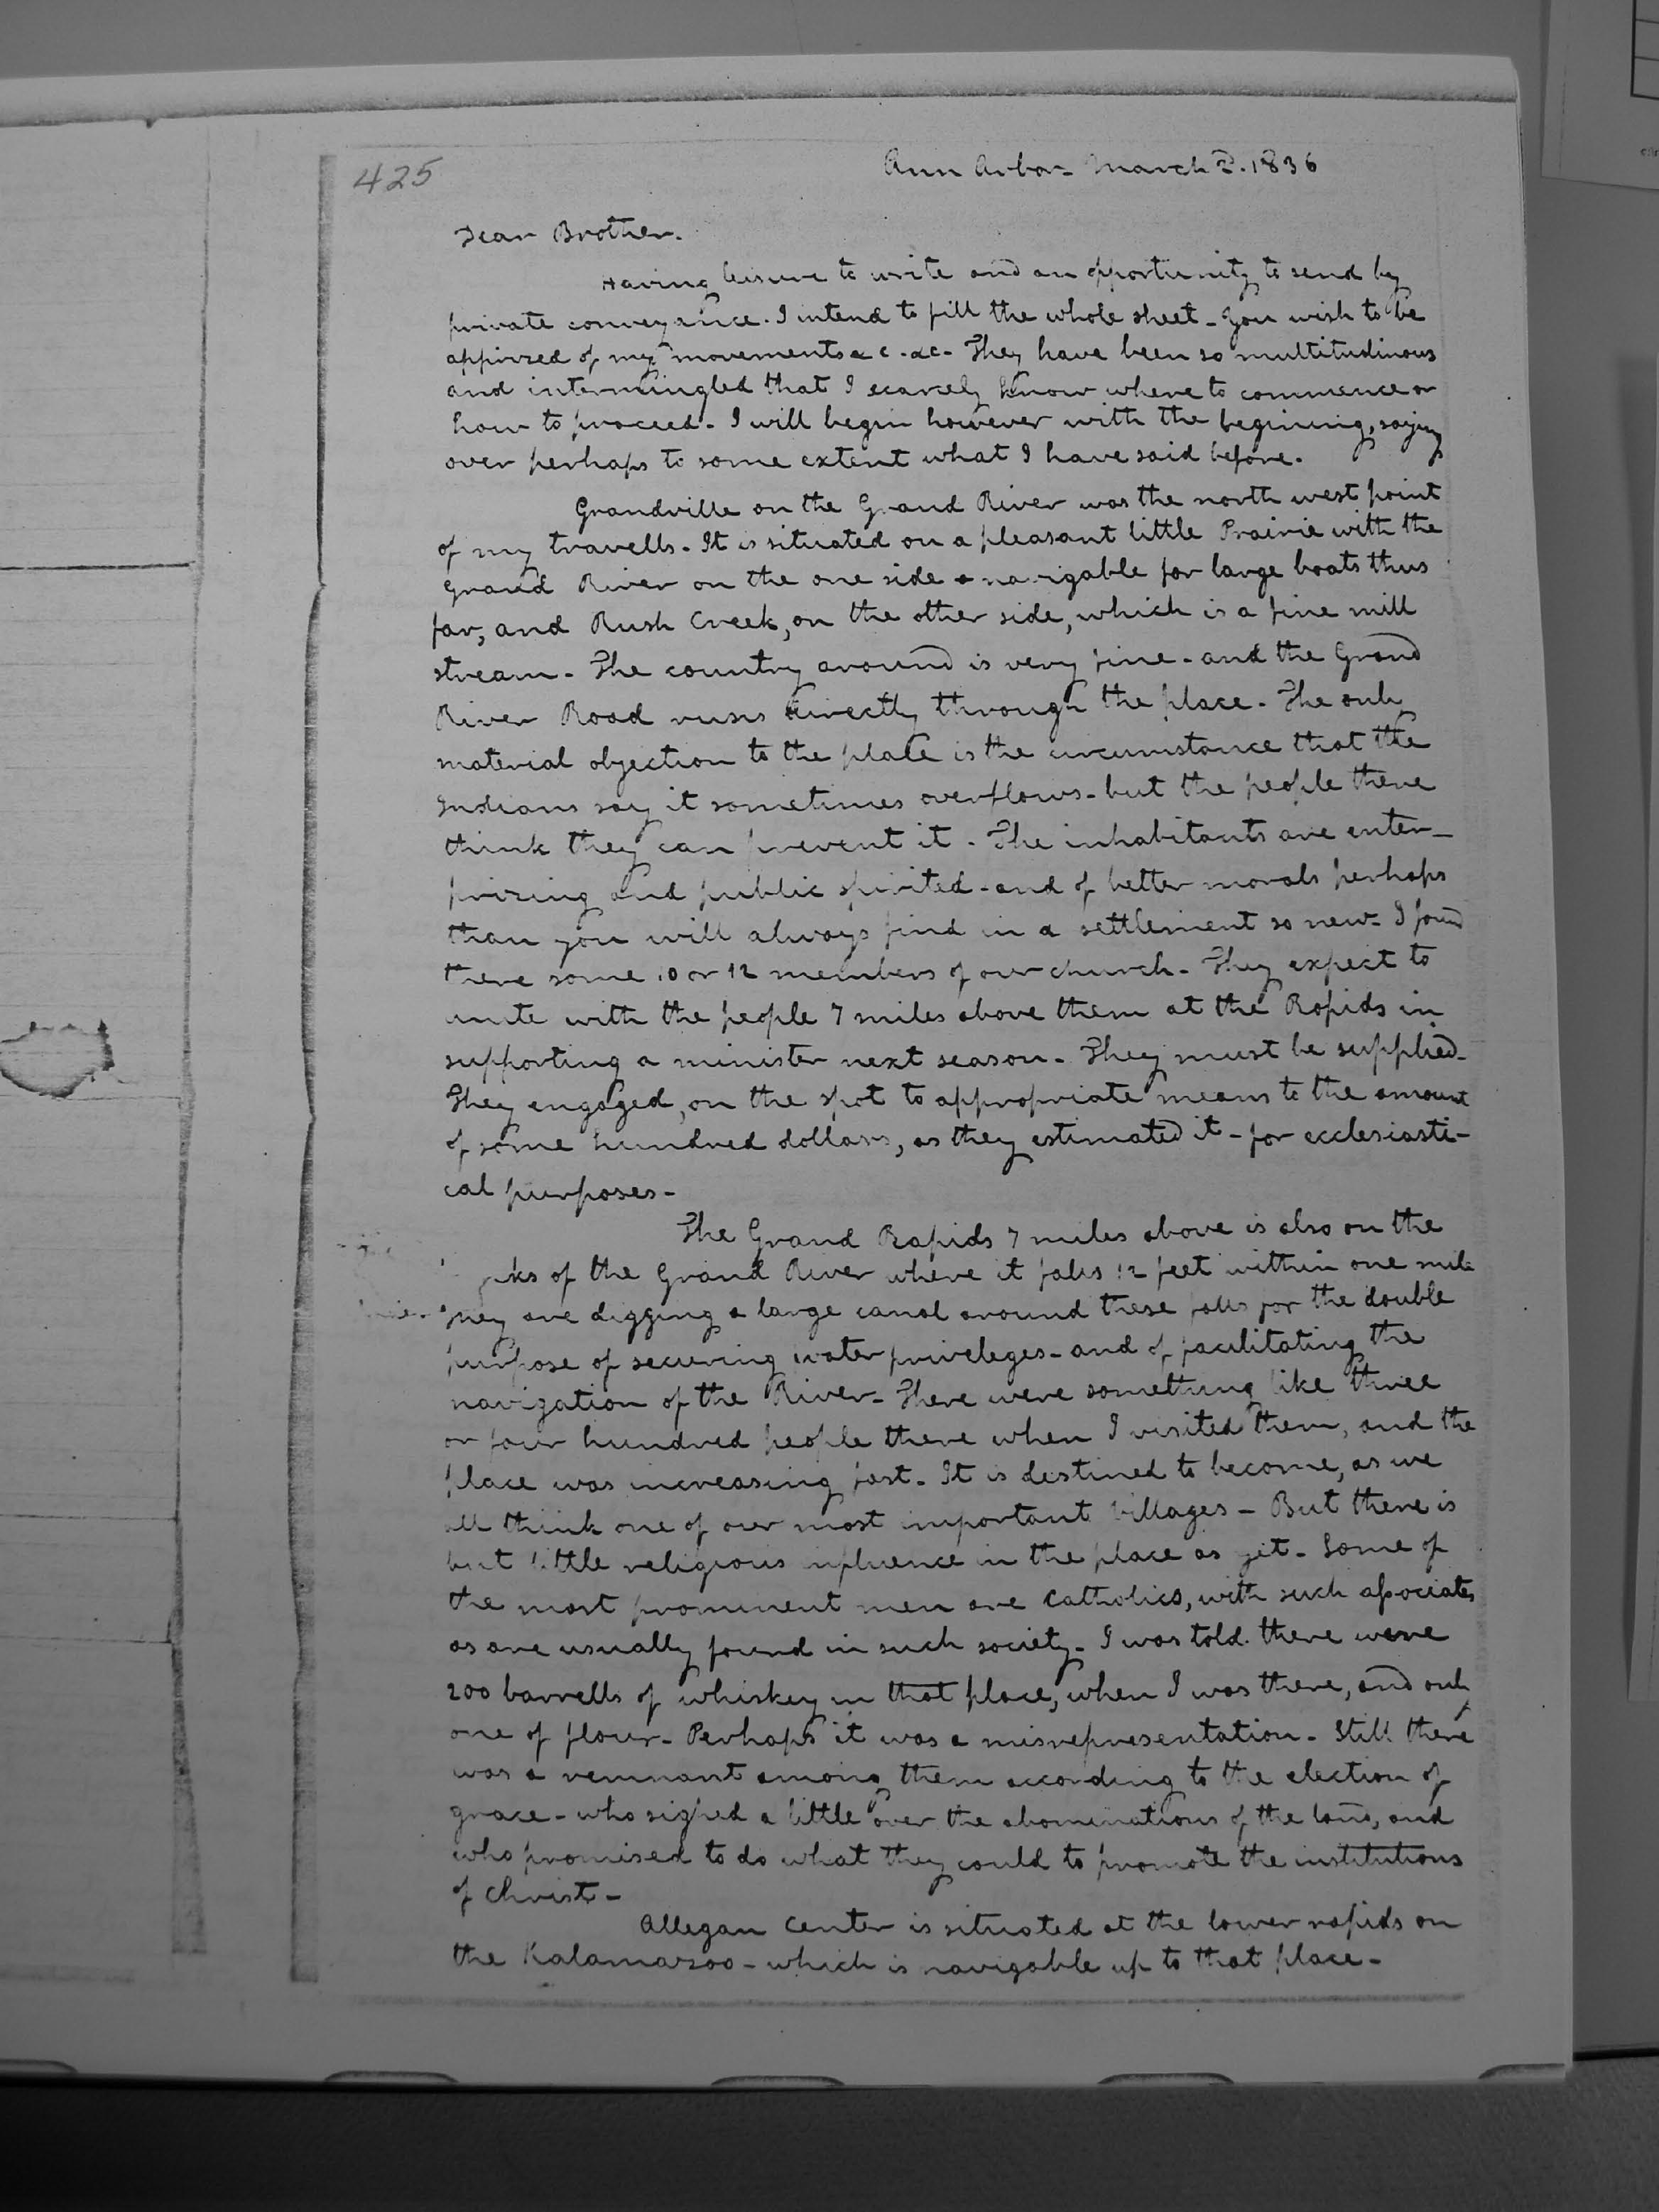 425
Ann Arbor March 2. 1836
Dear Brother.
Having leisure to write and an opportunity to send by
private conveyance. I intend to fill the whole sheet - You wish to be
apprized of my movements &c. &c - They have been so multitudinous
and intermingled that I scarcely know where to commence or
how to proceed - I will begin however with the begining, saying
over perhaps to some extent what I have said before.
Grandville on the Grand River was the north west point
of my travells - It is situated on a pleasant little Prairie with the
Grand River on the one side navigable for large boats thus
far, and Rush Creek, on the other side, which is a fine mill
stream - The country around is very fine - and the Grand
River Road runs directly through the place - The only
material objection to the place is the circumstance that the
Indians say it sometimes overflows - but the people there
think they can prevent it - The inhabitants are enter-
prizing and public spirited - and of better morals perhaps
than you will always find in a settlement so new - I found
there some 10 or 12 members of our church - They expect to
unite with the people 7 miles above them at the Rapids in
supporting a minister next season - They must be supplied -
They engaged, on the spot to appropriate means to the amount
of some hundred dollars, as they estimated it - for ecclesiasti-
cal purposes -
The Grand Rapids 7 miles above is also on the
of the Grand River where it falls 12 feet within one mile
They are digging a large canal around these falls for the double
purpose of securing water priveleges - and of facilitating the
navigation of the River - There were something like three
or four hundred people there when I visited them, and the
place was increasing fast - It is destined to become, as we
all think one of our most important villages - But there is
but little religious influence in the place as yet - Some of
the most prominent men are Catholics, with such associates
as are usually found in such society - I was told there were
200 barrells of whiskey in that place, when I was there, and only
one of flour - Perhaps it was a misrepresentation - Still there
was a remnant among them according to the election of
grace - who sighed a little over the abominations of the land, and
who promised to do what they could to promote the institutions
of Christ -
Allegan Center is situated at the lower rapids on
the Kalamazoo - which is navigable up to that place -